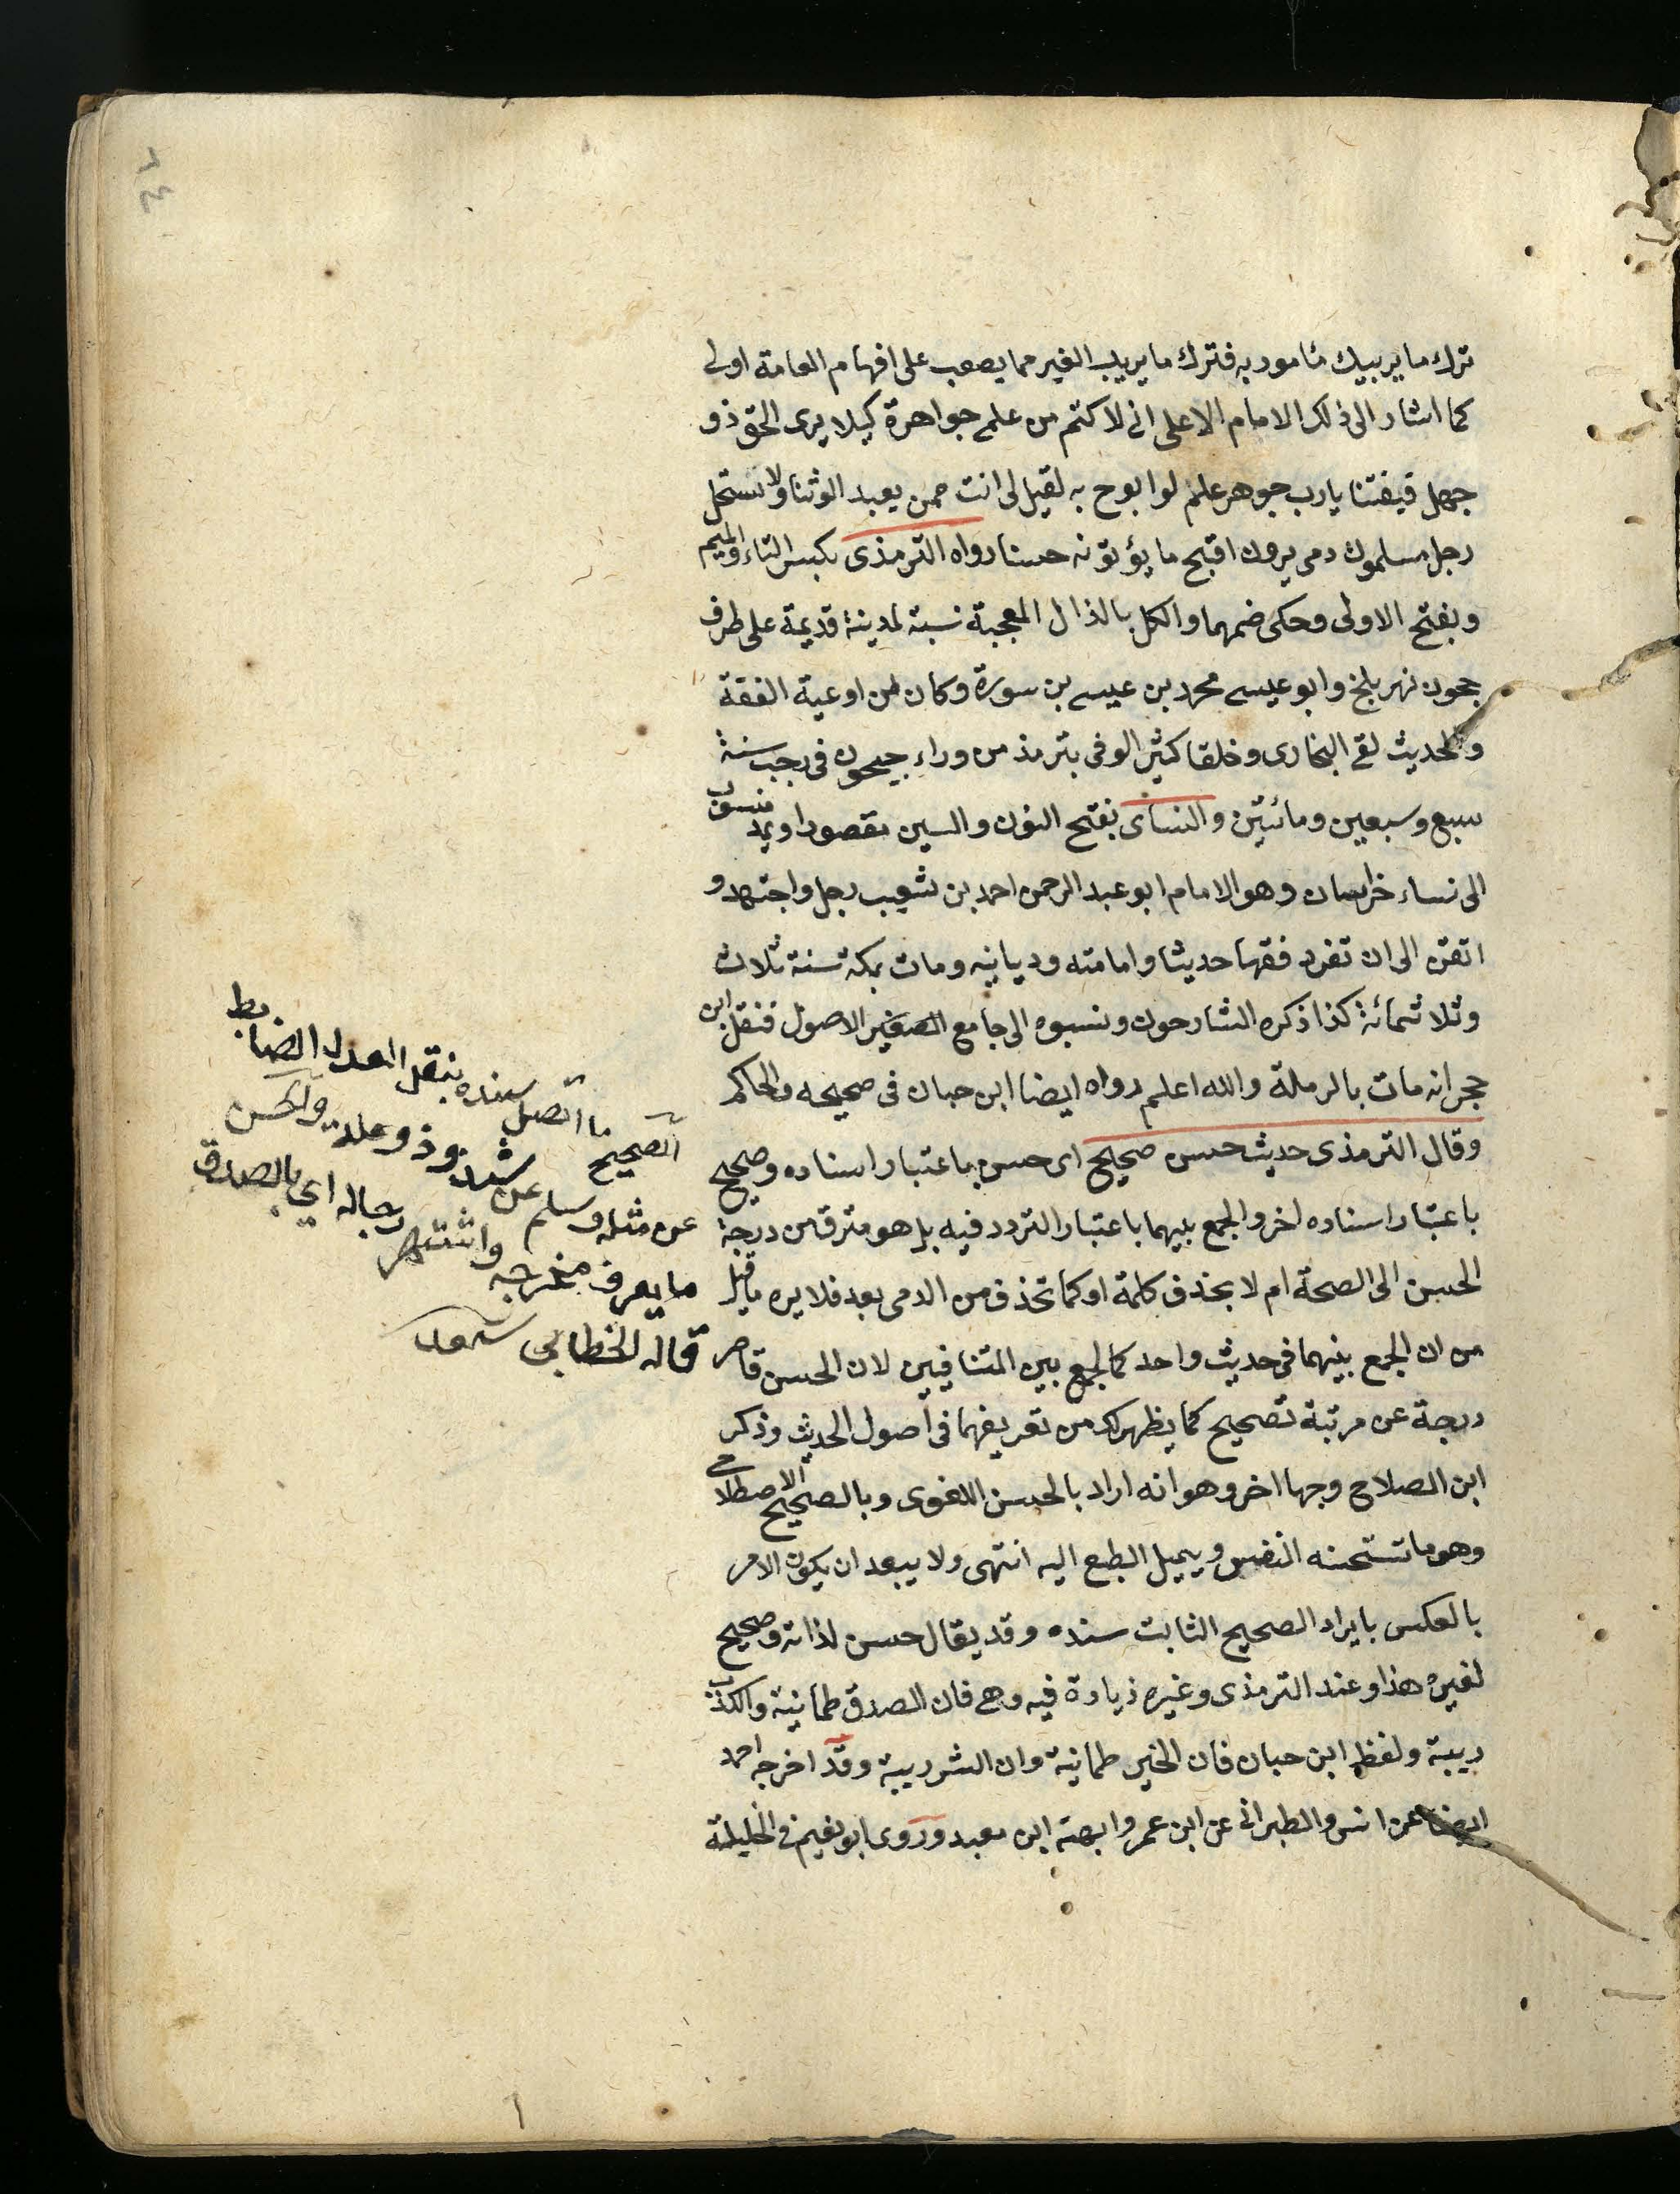 ٦٤
ترك ما يريبيك مأمور به فترك ما يريب الغير مما يصعب على افهام العامة اولى
كما اشار الى ذلك الامام الاعلى انى لاكتم من علمى جواهرة كيلا يرى الحق ذو
جهل فيفتنا يارب جوهر علم لو ابوح به لقيل لى انت ممن يعبد الوثنا ولا تستحل
رجل مسلمون دمى يرون اقبح ما يؤتونه حسنا رواه الترمذى بكسر التاء والميم
وبفتح الاولى وحكى ضمهما والكل بالذال المعجبة نسبة لمدينة قديمة على طرف
جحون نهر بلخ وابو عيسى محمد بن عيسى بن سورة وكان من اوعية الفقة
والحديث لقى البخارى وخلقا كثير الوفى بترمذ من وراء جيحون فى رجب سنة
سبع وسبعين ومائتين والنساى بفتح النون والسين مقصورا ويمد منسوب
الى نساء خراسان وهو الامام ابو عبد الرحمن احمد بن شعيب رجل واجتهد و
اتقن الى ان تفرد فقها حديثا وامامته وديانيه ومات بمكة سنة ثلاث
وثلاثمائة كذا ذكره الشارحون ونسبوه الى جامع الصغير الاصول فنقل ابن
حجر انه مات بالرملة والله اعلم رواه ايضا ابن حبان فى صحيحه والحاكم
وقال الترمذى حديث حسن صحيح اى حسن باعتبار اسناده وصحيح
باعتبار اسناده اخر والجمع بيهما باعتبار التردد فيه بل هو مترق من درجة
الحسن الى الصحة ام لا بحذف كلمة او كما تحذف من الدمى بعد فلا يره ما قيل
من ان الجمع بينهما فى حديث واحد كالجمع بين المتنافيين لان الحسن قاصر
درجة عن مرتبة تصحيح كما يظهر لك من تعريفهما فى اصول الحديث وذكر
ابن الصلاح وجها اخر وهو انه اراد بالحسن اللغوى وبالصحيح الاصطلاحى
وهو ما تستحسنه النفس ويميل الطبع اليه انتهى ولا يبعد ان يكون الامر
بالعكس بايراد الصحيح الثابت سنده وقد يقال حسن لذاته وصحيح
لغيره هذا وعند الترمذى وغيره زيادة فيه وهى فان الصدق طمانينة والكذب
ريبة ولفظ ابن حبان فان الخير طمانية وان الشر ريبة وقد اخرجه احمد
ايضا عن انس والطبرانى عن ابن عمر وابهة ابن معبد وروى ابو نعيم فى الحليلة
الصحيح ما اتصل سنده بنقل العدل الضابط
عن مثله وسلم عن شذوذ وعلة والحسن
ما يعرف مخرجه واشتهر رجاله اي بالصدق
قاله الخطابي